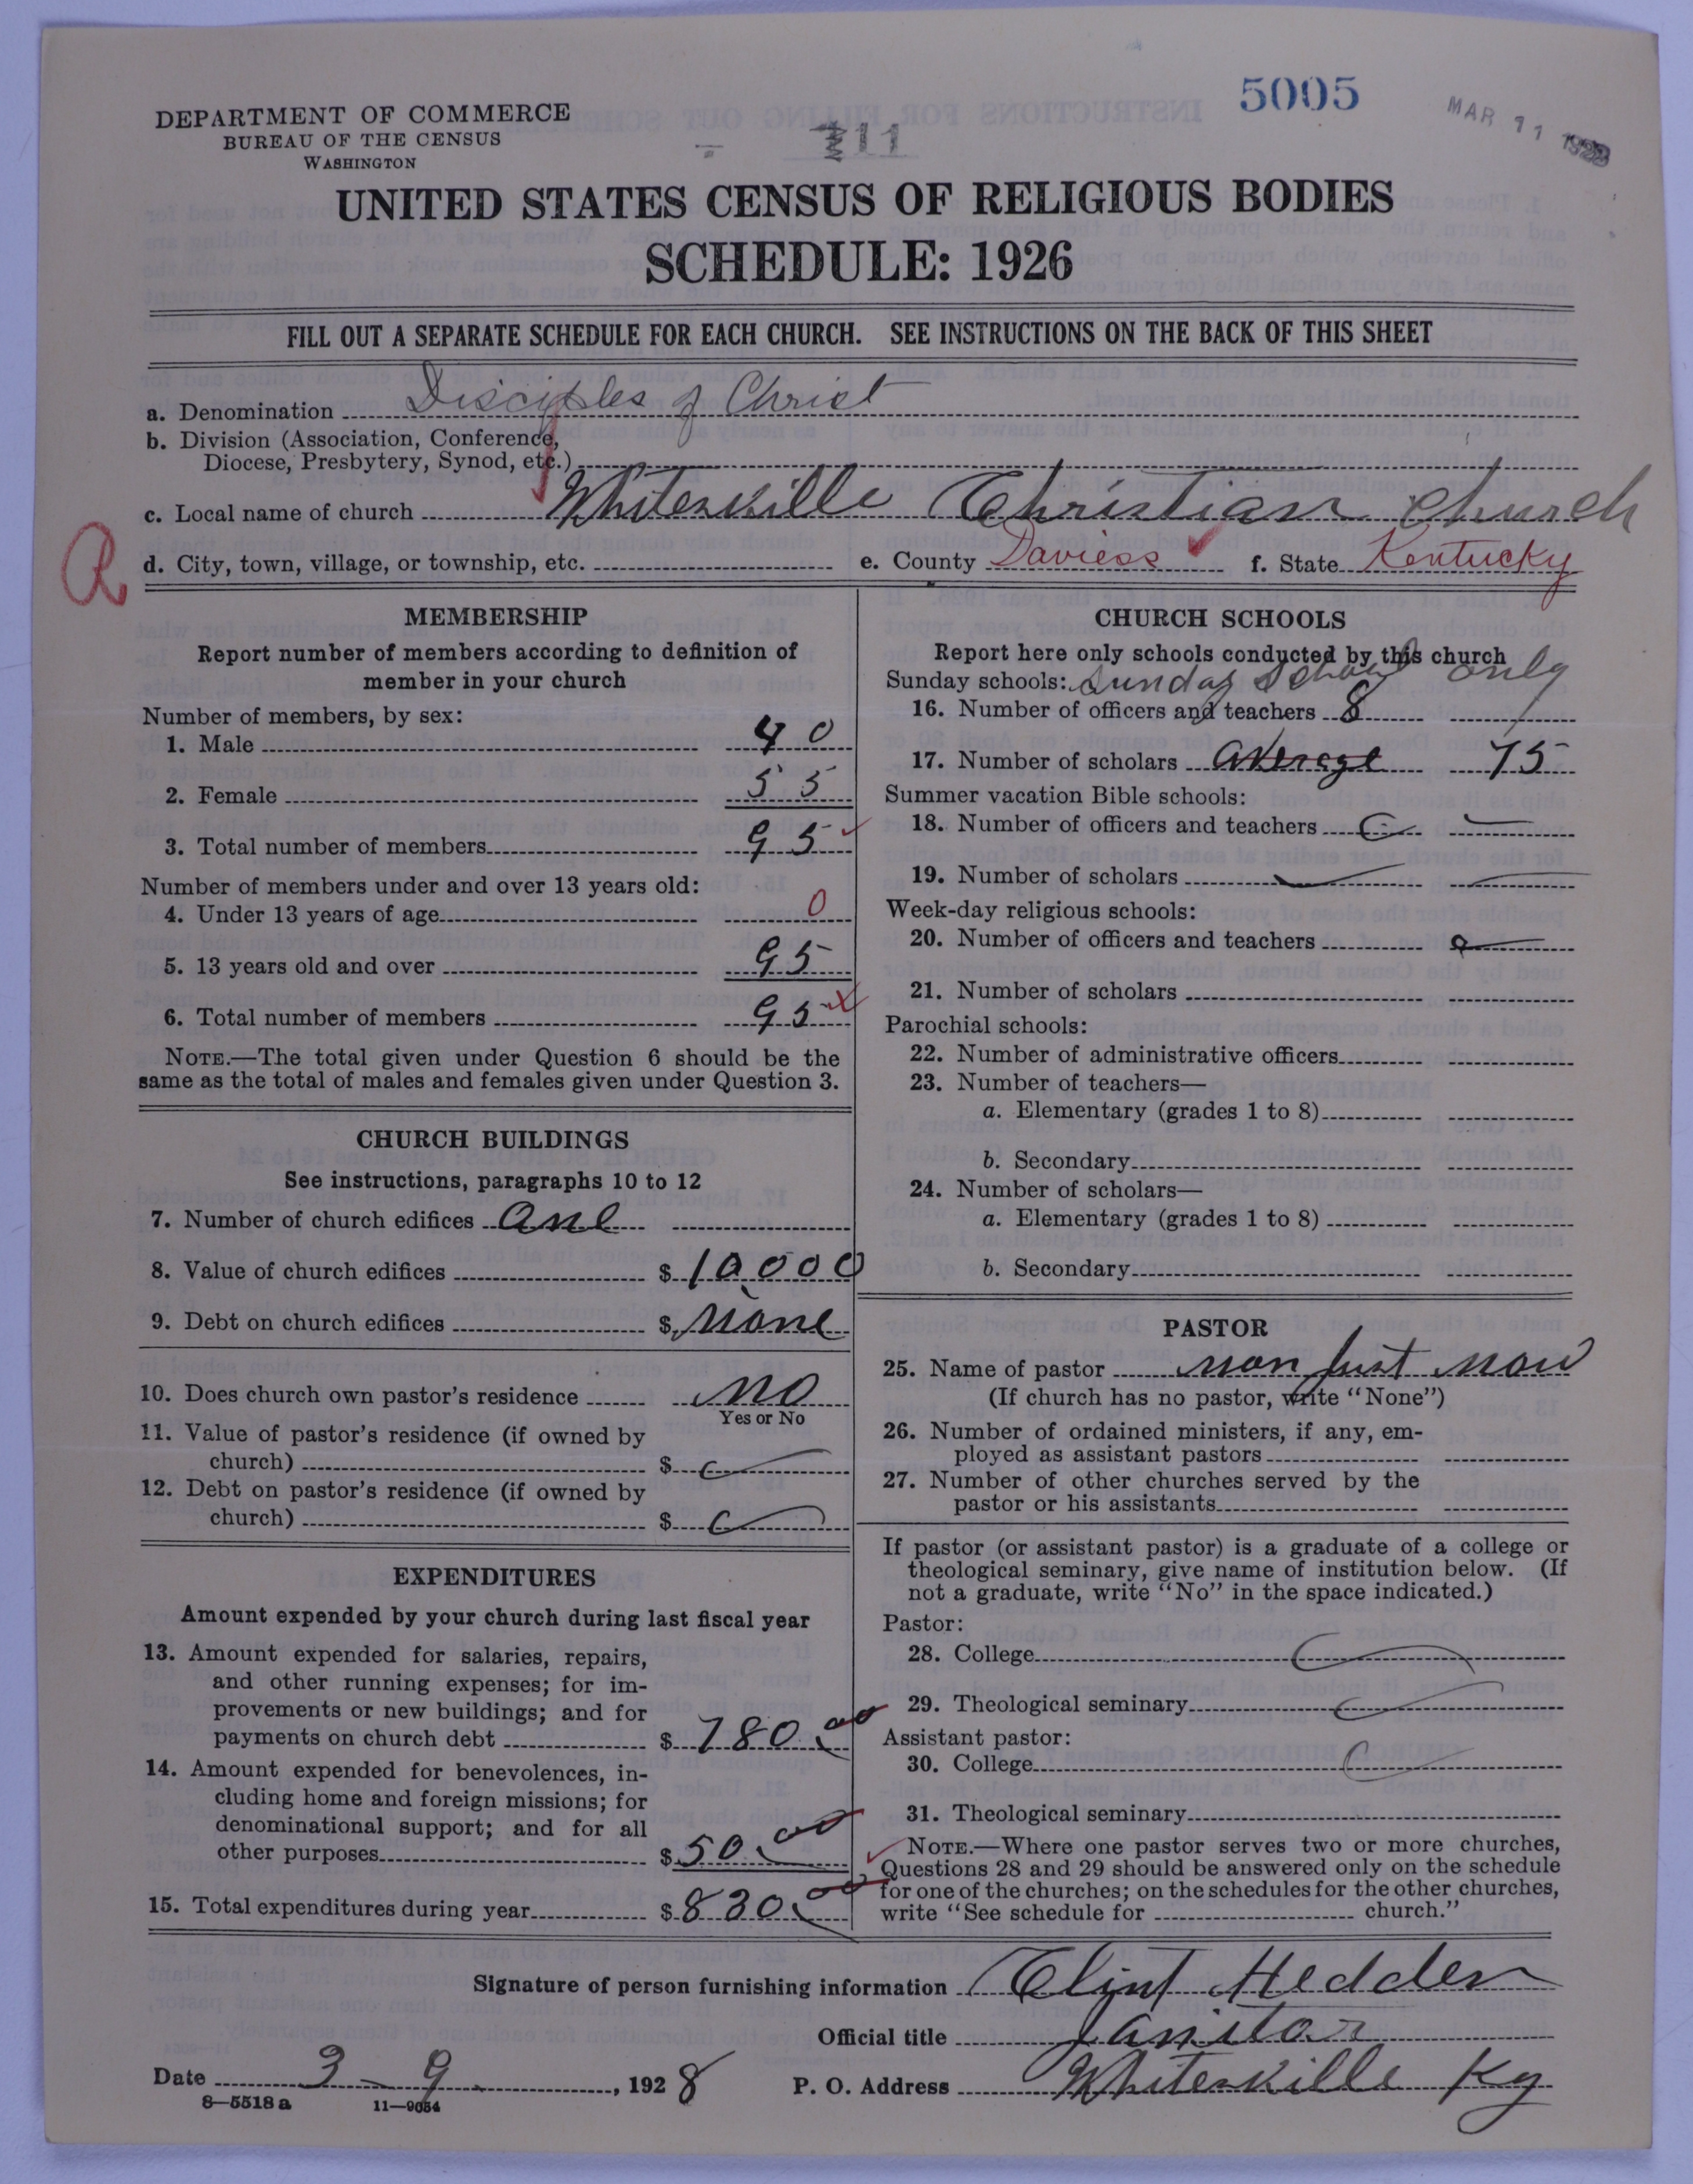 5005
MAR 11 1928
DEPARTMENT OF COMMERCE
BUREAU OF THE CENSUS
WASHINGTON
11
UNITED STATES CENSUS OF RELIGIOUS BODIES
SCHEDULE: 1926
FILL OUT A SEPARATE SCHEDULE FOR EACH CHURCH. SEE INSTRUCTIONS ON THE BACK OF THIS SHEET
a. Denomination Disciples of Christ
b. Division (Association, Conference,
Diocese, Presbytery, Synod, etc.)
c. Local name of church Whitesville Christian Church
R
d. City, town, village, or township, etc. e. County Daviess f. State Kentucky
MEMBERSHIP
Report number of members according to definition of
member in your church
Number of members, by sex:
1. Male 40
2. Female 55
3. Total number of members 95
Number of members under and over 13 years old:
4. Under 13 years of age 0
5. 13 years old and over 95
6. Total number of members 95
NOTE.—The total given under Question 6 should be the
same as the total of males and females given under Question 3.
CHURCH BUILDINGS
See instructions, paragraphs 10 to 12
7. Number of church edifices one
8. Value of church edifices $ 10000
9. Debt on church edifices $ None
10. Does church own pastor's residence no
Yes or No
11. Value of pastor's residence (if owned by
church) $
12. Debt on pastor's residence (if owned by
church) $
EXPENDITURES
Amount expended by your church during last fiscal year
13. Amount expended for salaries, repairs,
and other running expenses; for im-
provements or new buildings; and for
payments on church debt $ 780.00
14. Amount expended for benevolences, in-
cluding home and foreign missions; for
denominational support; and for all
other purposes $ 50.00
15. Total expenditures during year $ 830.00
CHURCH SCHOOLS
Report here only schools conducted by this church
Sunday schools: Sunday School only
16. Number of officers and teachers 8
17. Number of scholars average 75
Summer vacation Bible schools:
18. Number of officers and teachers
19. Number of scholars
Week-day religious schools:
20. Number of officers and teachers
21. Number of scholars
Parochial schools:
22. Number of administrative officers
23. Number of teachers—
a. Elementary (grades 1 to 8)
b. Secondary
24. Number of scholars—
a. Elementary (grades 1 to 8)
b. Secondary
PASTOR
25. Name of pastor non just now
(If church has no pastor, write "None")
26. Number of ordained ministers, if any, em-
ployed as assistant pastors
27. Number of other churches served by the
pastor or his assistants
If pastor (or assistant pastor) is a graduate of a college or
theological seminary, give name of institution below. (If
not a graduate, write "No" in the space indicated.)
Pastor:
28. College
29. Theological seminary
Assistant pastor:
30. College
31. Theological seminary
NOTE.—Where one pastor serves two or more churches,
Questions 28 and 29 should be answered only on the schedule
for one of the churches; on the schedules for the other churches,
write "See schedule for church."
Signature of person furnishing information Clint Hedden
Official title Janitor
Date 3-9, 1928 P. O. Address Whitesville Ky
8—5518 a 11—9054